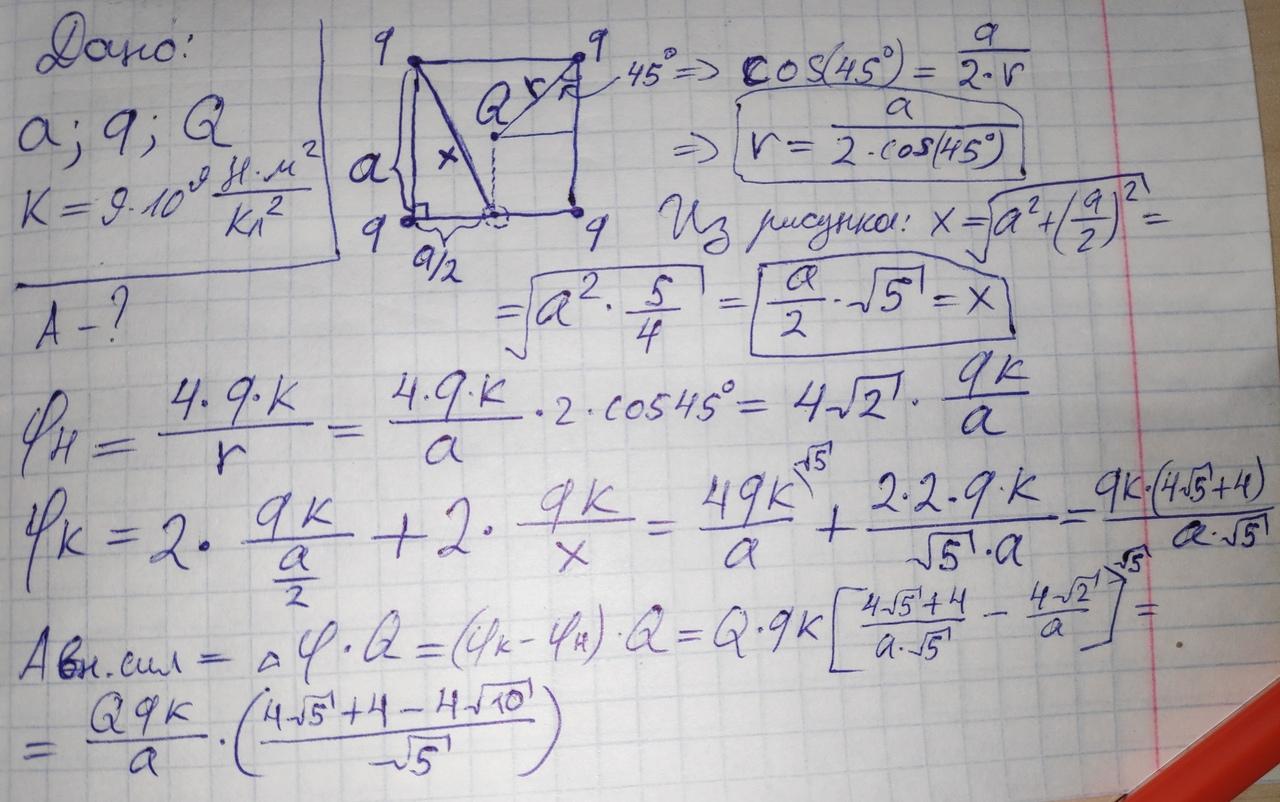 Дано:
a; q; Q
K = 9·10⁹ Н·м²/Кл²
A - ?
q q
Q r
a x
q q
a/2
45° => cos(45°) = a/(2·r)
=> r = a/(2·cos(45°))
Из рисунка: x = √(a² + (a/2)²) =
= √(a² · 5/4) = a/2 · √5 = x
φн = 4·q·k/r = 4·q·k/a · 2·cos45° = 4√2 · qk/a
φк = 2 · qk/(a/2) + 2 · qk/x = 4qk/a \√5 + 2·2·q·k/(√5·a) = qk·(4√5+4)/(a·√5)
Aвн.сил = Δφ·Q = (φк - φн)·Q = Q·qk[(4√5+4)/(a·√5) - 4√2/a \√5] =
= Qqk/a · ((4√5+4-4√10)/√5)